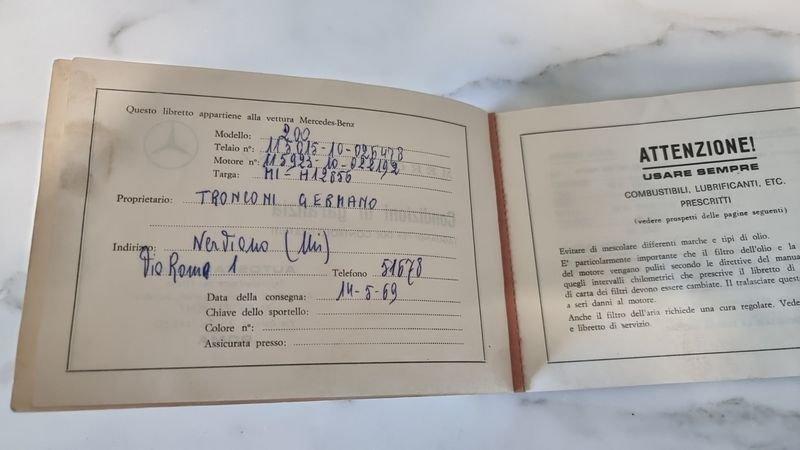 Questo libretto appartiene alla vettura Mercedes-Benz
Modello: 200
Telaio n°: 115015-10-025478
Motore n°: 115923-10-022192
Targa: MI-M12856
Proprietario: TRONCONI GERMANO
Indirizzo: Nerviano (Mi)
Via Roma 1
Telefono 51678
Data della consegna: 14-5-69
Chiave dello sportello:
Colore n°:
Assicurata presso:
ATTENZIONE!
USARE SEMPRE
COMBUSTIBILI, LUBRIFICANTI, ETC.
PRESCRITTI
(vedere prospetti delle pagine seguenti)
Evitare di mescolare differenti marche e tipi di olio.
E' particolarmente importante che il filtro dell'olio e la
del motore vengano puliti secondo le direttive del manua
quegli intervalli chilometrici che prescrive il libretto di
di carta dei filtri devono essere cambiate. Il tralasciare quest
a seri danni al motore.
Anche il filtro dell'aria richiede una cura regolare. Vede
e libretto di servizio.